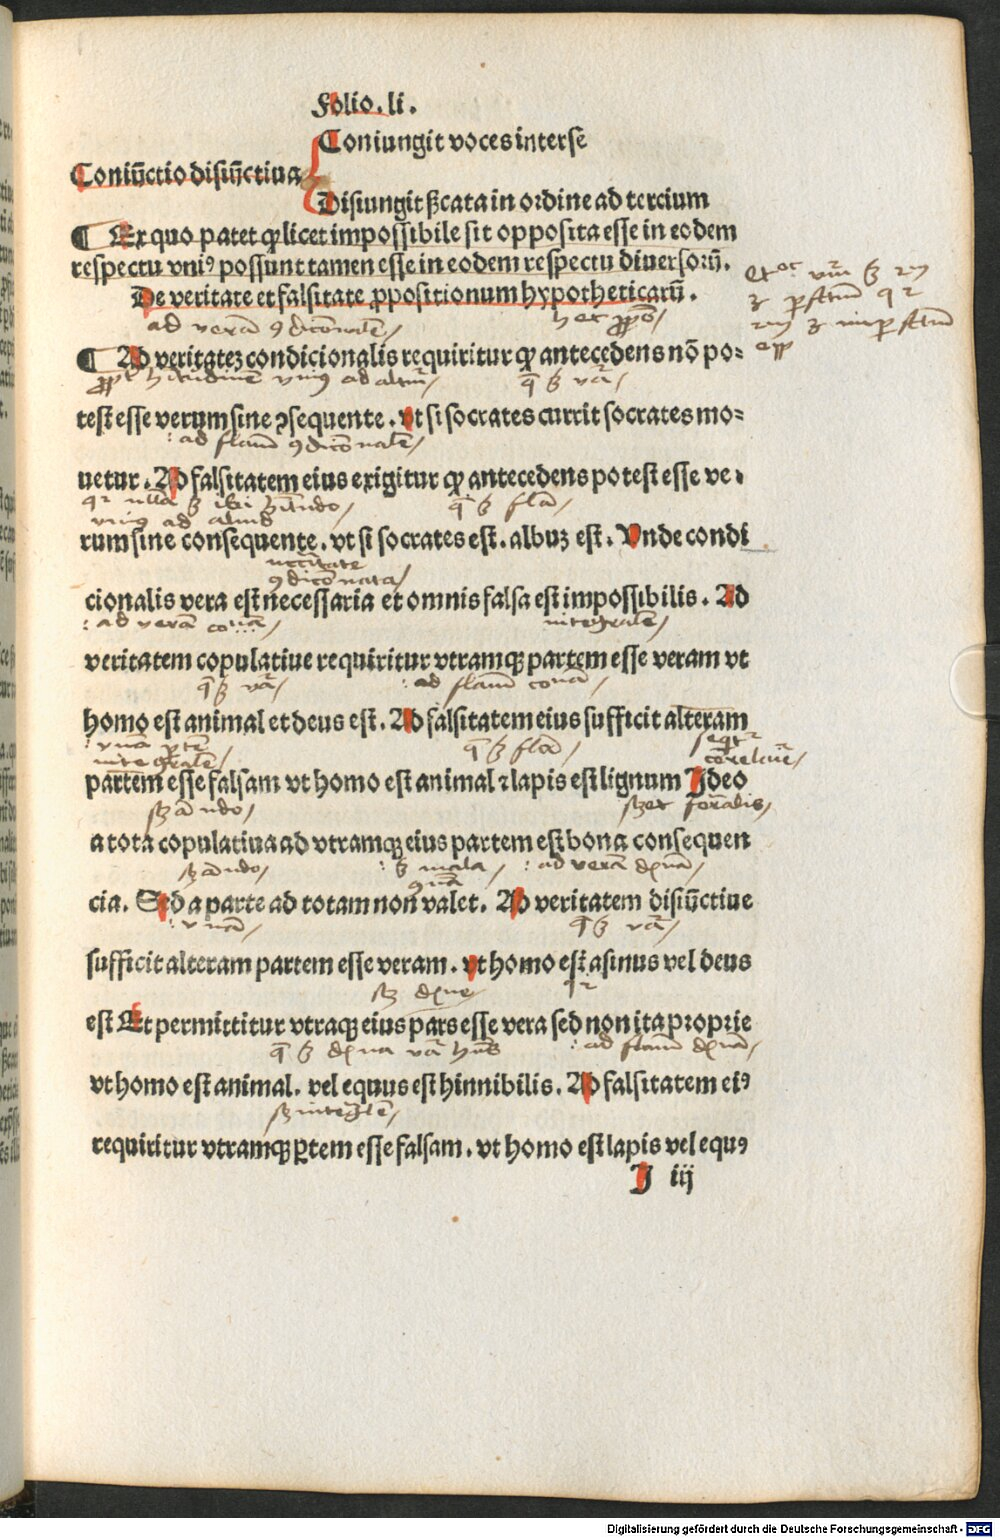 Folio. li.
Coniungit voces inter se
Coniūctio disiūctiua
Disiungit ßcata in ordine ad tercium
¶ Ex quo patet ꝙ licet impossibile sit opposita esse in eodem
respectu vniꝰ possunt tamen esse in eodem respectu diuersoꝝ.
De veritate et falsitate ꝓpositionum hypotheticarū.
ad verā ꝯdicōnalē
¶ Ad veritatez condicionalis requiritur ꝙ antecedens nō po⸗
vnius ad
test esse verum sine ꝯsequente. vt si socrates currit socrates mo⸗
ad flam̄ ꝯdicōnalē
uetur. Ad falsitatem eius exigitur ꝙ antecedens potest esse ve⸗
vnius ad aliud
rum sine consequente. vt si socrates est. albuz est. Unde condi
ꝯdicōnata
cionalis vera est necessaria et omnis falsa est impossibilis. Ad
ad verā
integralē
veritatem copulatiue requiritur vtramqꝫ partem esse veram vt
ad flam̄
homo est animal et deus est. Ad falsitatem eius sufficit alteram
vnā ptē
integralē
partem esse falsam vt homo est animal ⁊ lapis est lignum Ideo
a tota copulatiua ad vtramqꝫ eius partem est bona consequen
mala
ad verā
cia. Sed a parte ad totam non valet. Ad veritatem disiūctiue
vnā
sufficit alteram partem esse veram. vt homo est asinus vel deus
est Et permittitur vtraqꝫ eius pars esse vera sed non ita proprie
ad flam̄
vt homo est animal. vel equus est hinnibilis. Ad falsitatem eiꝰ
requiritur vtramqꝫ ꝑtem esse falsam. vt homo est lapis vel equꝰ
I iij
Digitalisierung gefördert durch die Deutsche Forschungsgemeinschaft - DFG